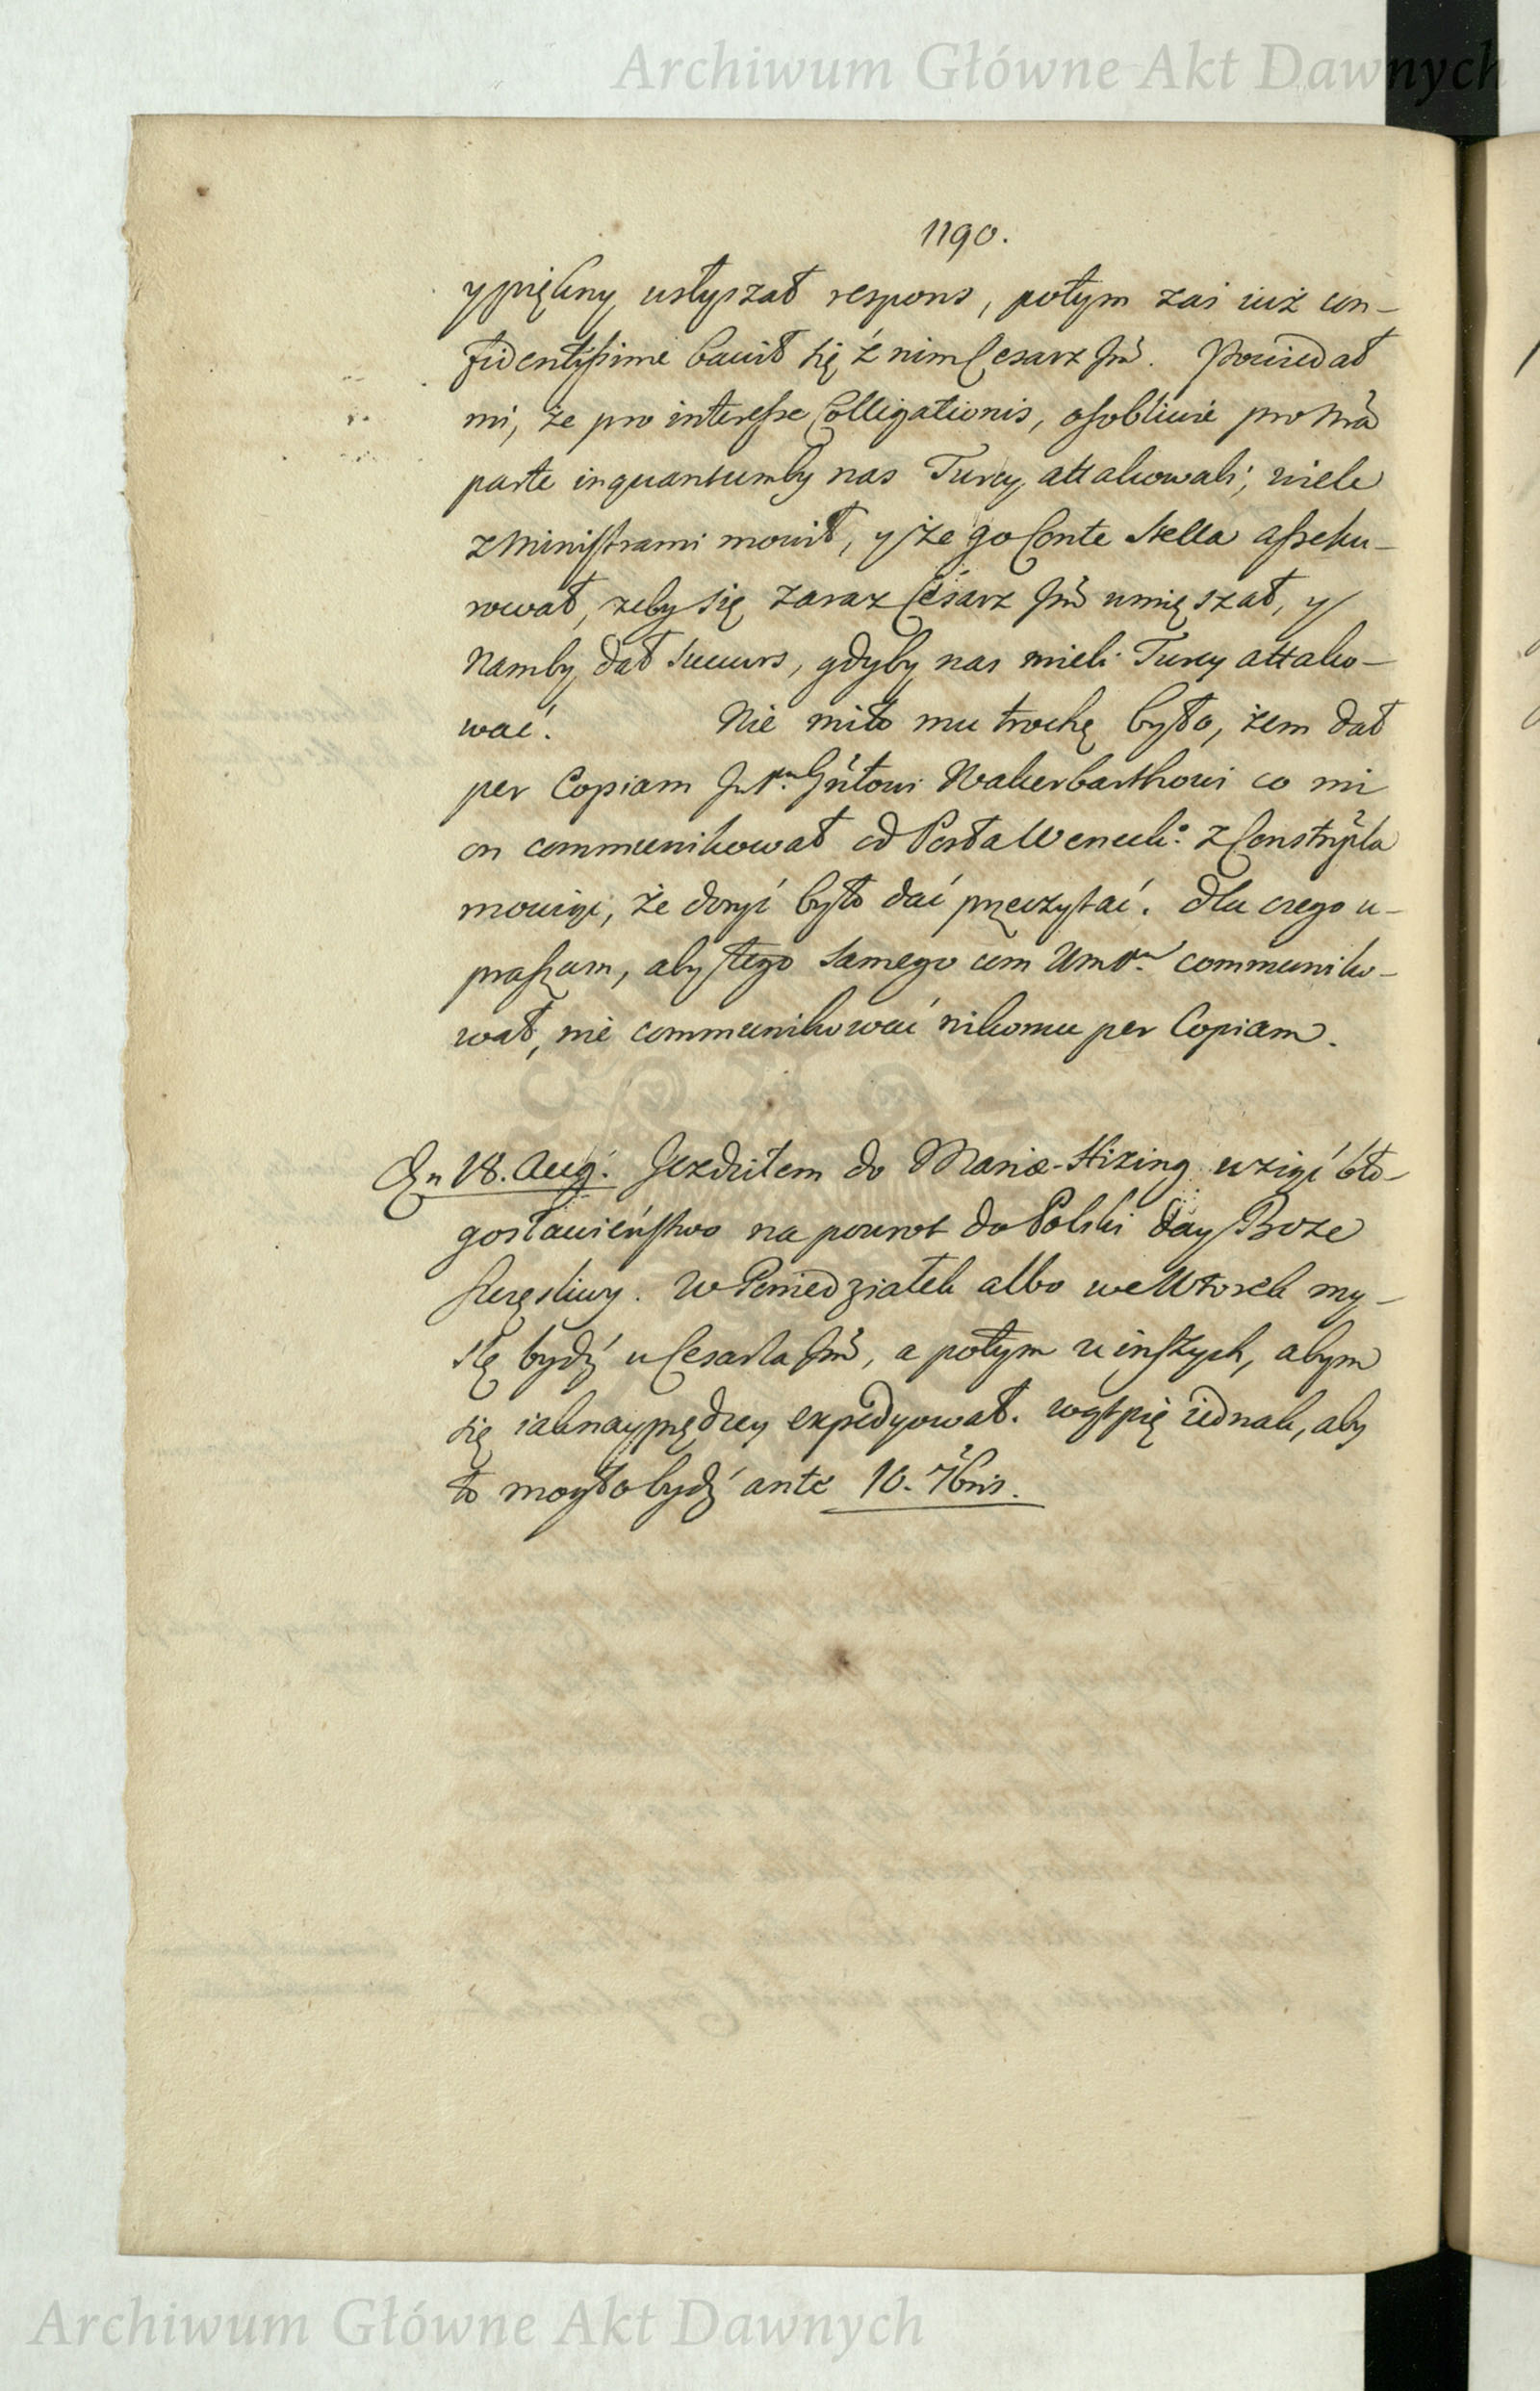 Archiwum Główne Akt Dawnych
1190.
y piękny usłyszał respons, potym zaś iuż con-
fidentissime bawił się z nim Cesarz Jmć. Powiedał
mi, że pro interesse Colligationis, osobliwie pro nrã
parte inquantumby nas Turcy attakowali, wiele
z Ministrami mowił, y że go Conte Stella asseku-
rował, żeby się zaraz Cesarz Jmć umięszał, y
Namby dał sukurs, gdyby nas mieli Turcy attako-
wać. Nie miło mu trochę było, żem dał
per Copiam Wakerbarthowi co mi
on communikował od Posła z Constrpla
mowiąc, że dosyć było dać przeczytać. dla czego u-
praszam, aby tego samego com communiko-
wał, nie communikować nikomu per Copiam.
Dn 18. Aug. Jezdziłem do Maria-Hizing wziąć bło-
gosławieństwo na powrot do Polski day Boże
szczęsliwy. W Poniedziałek albo we Wtorek my-
slę bydź u Cesarza Jmć, a potym u inszych, abym
się iaknayprędzey expedyował. wątpię iednak, aby
to mogło bydź ante 10. 7bris.
Archiwum Główne Akt Dawnych